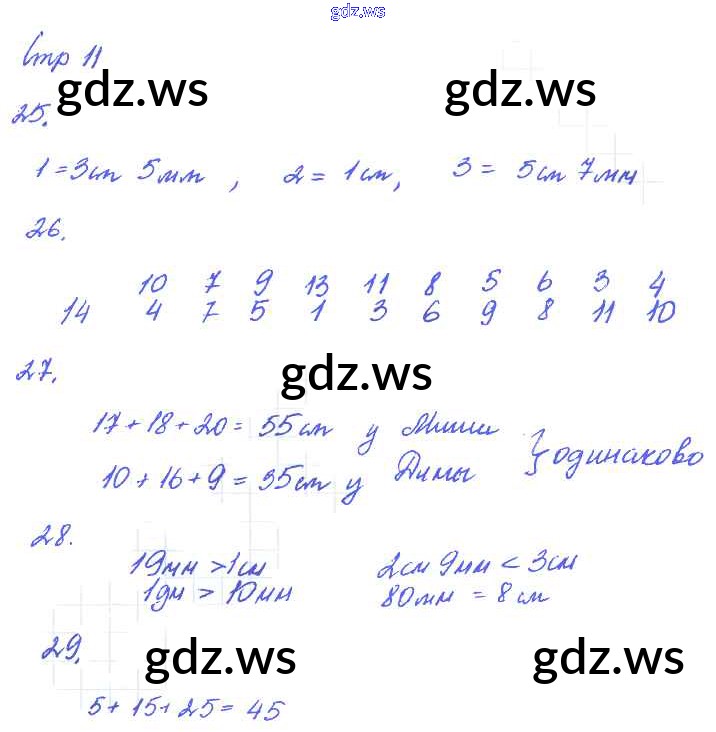 gdz.ws
Стр 11
gdz.ws gdz.ws
25.
1 = 3см 5мм , 2 = 1см, 3 = 5см 7мм
26.
10 7 9 13 11 8 5 6 3 4
14 4 7 5 1 3 6 9 8 11 10
27.
gdz.ws
17 + 18 + 20 = 55см у Миши
10 + 16 + 9 = 35см у Димы } одинаково
28.
19мм > 1см 2см 9мм < 3см
1дм > 10мм 80мм = 8см
29.
gdz.ws gdz.ws
5 + 15 + 25 = 45